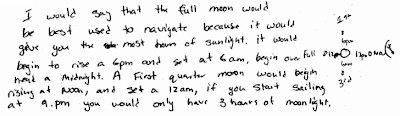 I would say that the full moon would
be best used to navigate because it would
give you the most hours of sunlight. it would
begin to rise a 6pm and set at 6am, begin over full 12
head a midnight. A First quarter moon would begin
rising at Noon, and set a 12am, if you start sailing
at 9.pm you would only have 3 hours of moonlight.
1st
6pm
3rd